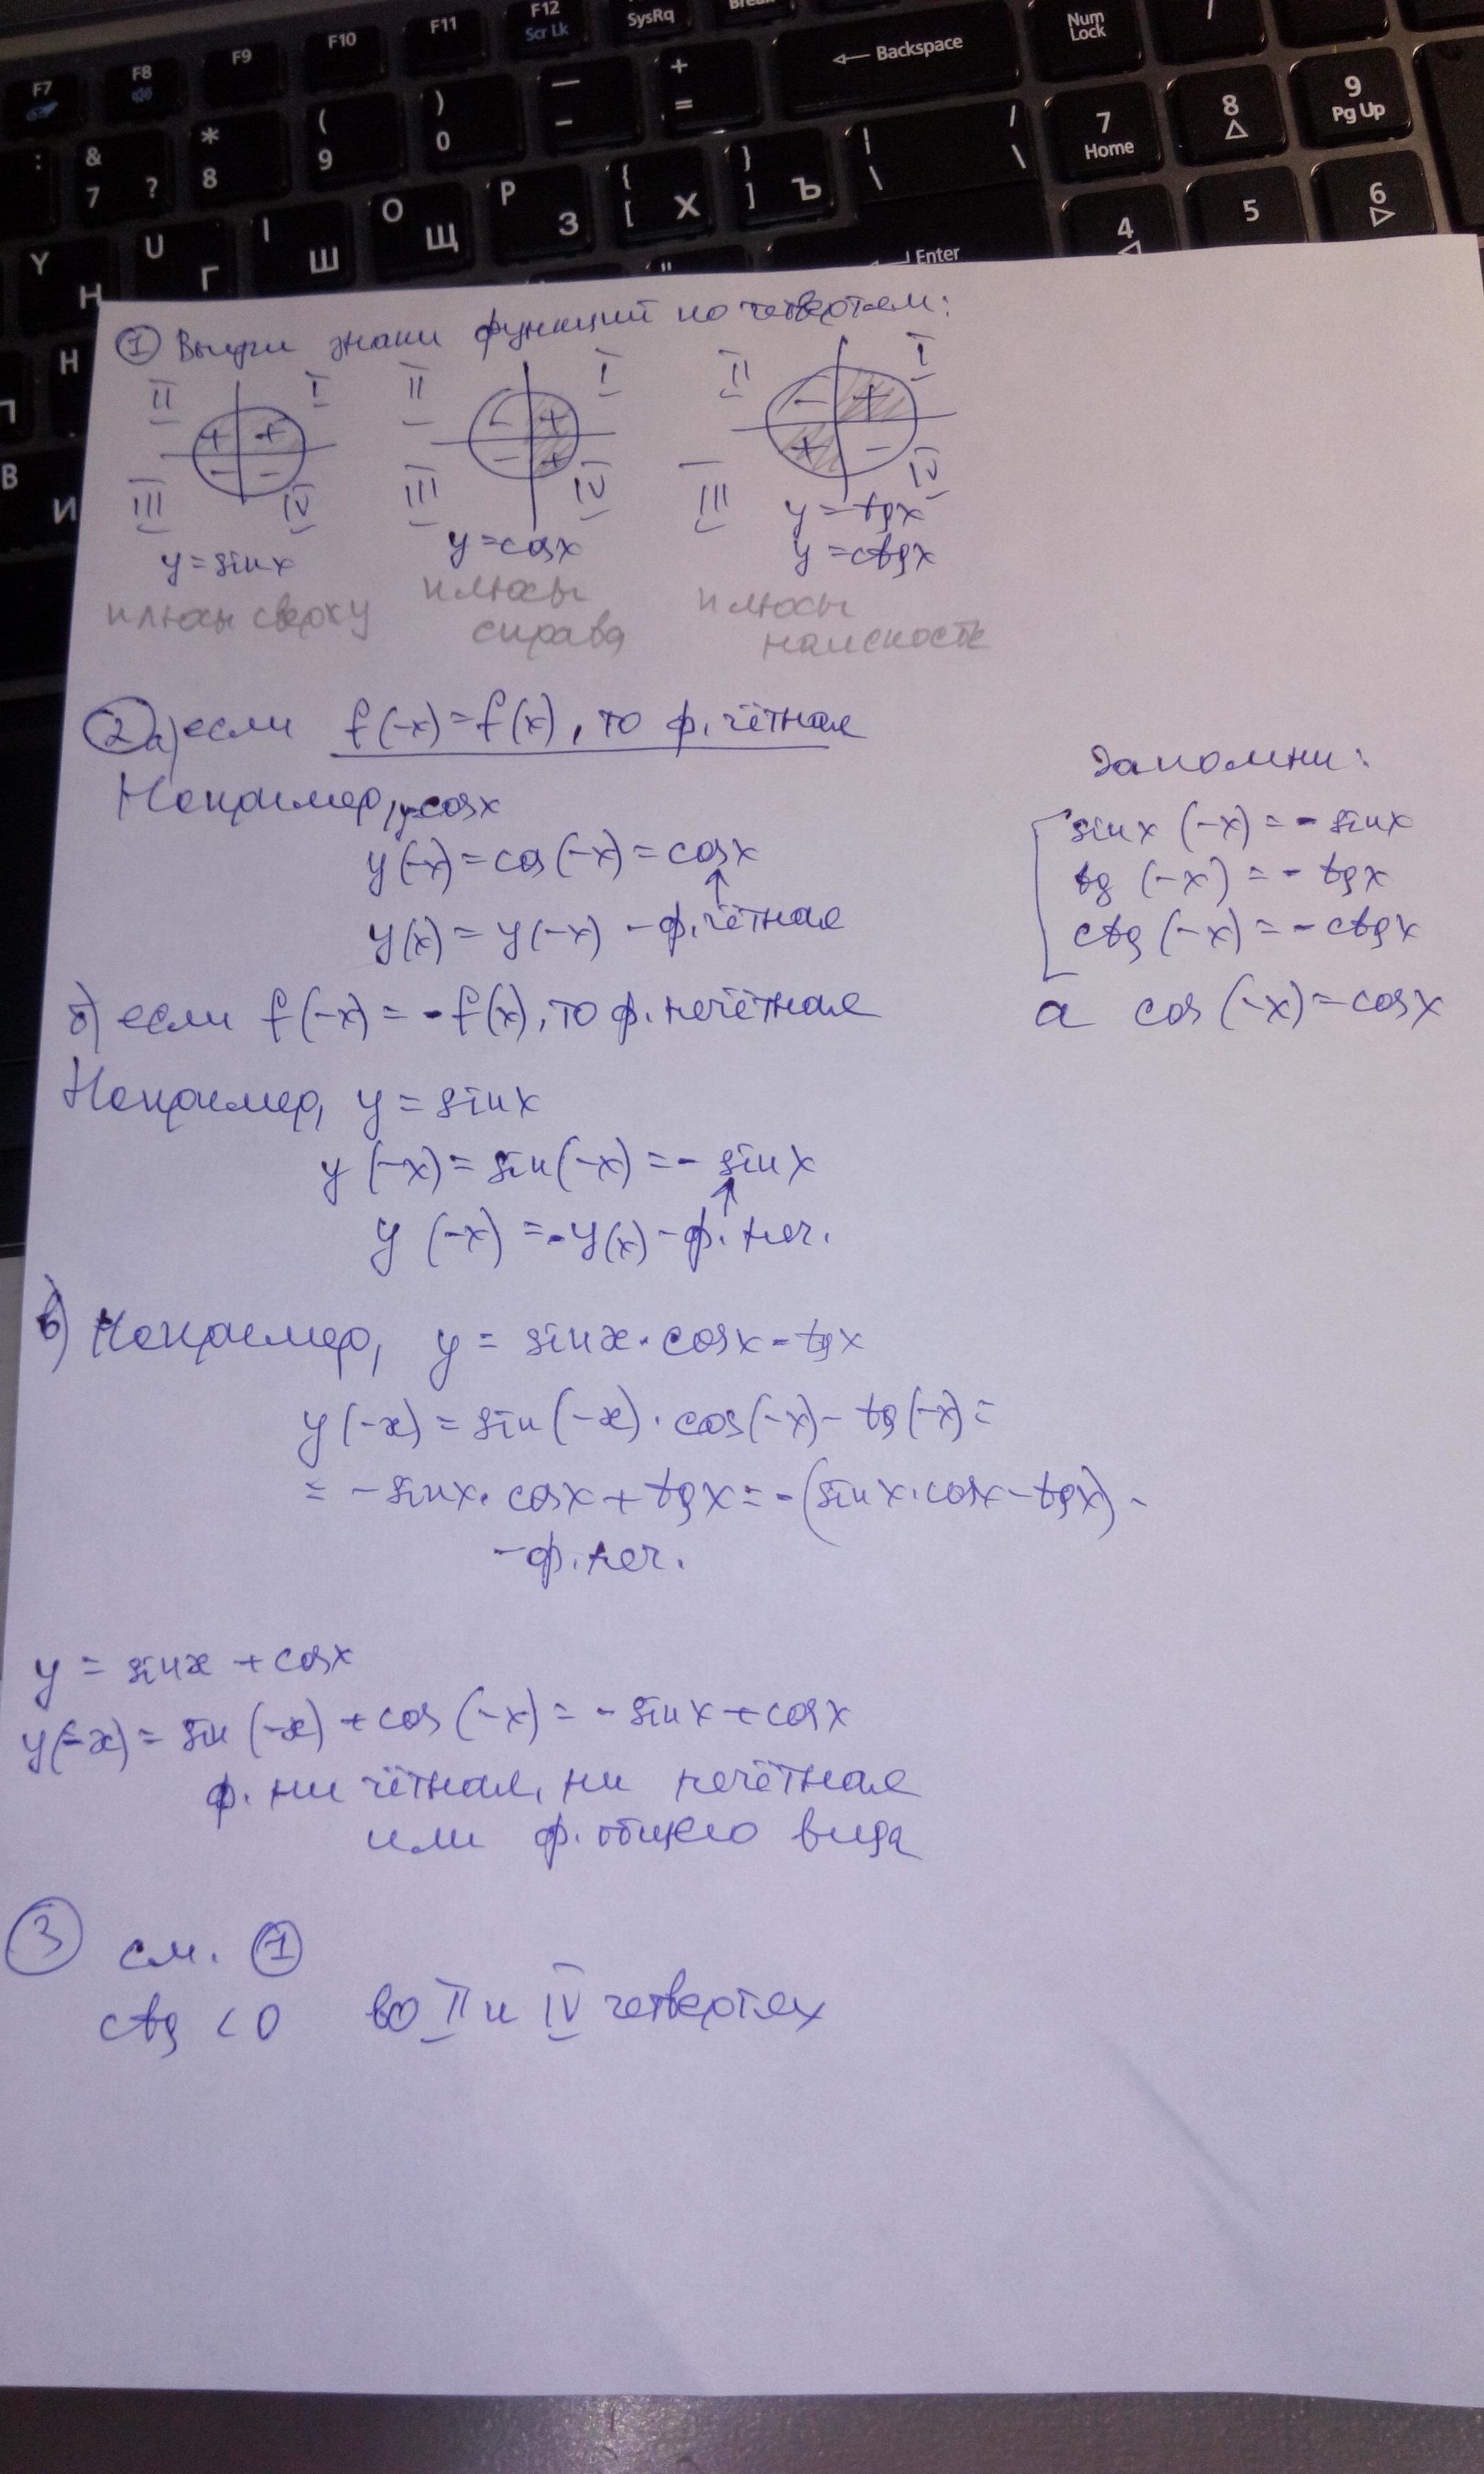 F7 F8 F9 F10 F11 F12 Scr Lk SysRq Num Lock /
& 7 ? * 8 ( 9 ) 0 — – + = ← Backspace 7 Home 8 9 Pg Up
Y Н U Г I Ш O Щ P З { [ Х } ] Ъ | \ / \ 4 5 6
Enter
① Выучи знаки функций по четвертям:
II I II I II I
+ + - + - +
- - - + + -
III IV III IV III IV
y = sinx y = cosx y = tgx
y = ctgx
плюсы сверху плюсы справа плюсы наискосок
② а) если f(-x) = f(x), то ф. чётная
Например, y=cosx
y(-x) = cos(-x) = cosx
y(x) = y(-x) - ф. чётная
Запомни:
sinx (-x) = - sinx
tg (-x) = - tgx
ctg (-x) = - ctgx
а cos (-x) = cosx
б) если f(-x) = -f(x), то ф. нечётная
Например, y = sinx
y (-x) = sin(-x) = - sinx
y (-x) = -y(x) - ф. неч.
в) Например, y = sinx · cosx - tgx
y(-x) = sin(-x) · cos(-x) - tg(-x) =
= -sinx · cosx + tgx = -(sinx · cosx - tgx) -
- ф. неч.
y = sinx + cosx
y(-x) = sin (-x) + cos (-x) = - sinx + cosx
ф. ни чётная, ни нечётная
или ф. общего вида
③ см. ①
ctg < 0 во II и IV четвертях